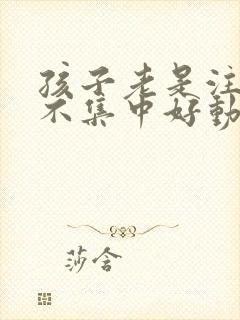 孩子老是注
不集中好動
莎舍